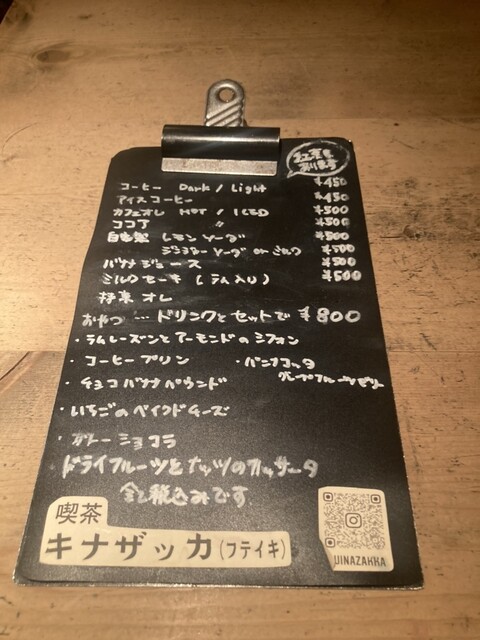 紅茶も
あります
コーヒー Dark / Light ¥450
アイスコーヒー ¥450
カフェオレ HOT / ICED ¥500
ココア 〃 ¥500
自家製 レモンソーダ ¥500
ジンジャーソーダ or ミルク ¥500
バナナジュース ¥500
ミルクセーキ (ラム入り) ¥500
抹茶オレ
おやつ … ドリンクとセットで ¥800
・ラムレーズンとアーモンドのシフォン
・コーヒープリン ・パンナコッタ
グレープフルーツゼリー
・チョコバナナパウンド
・いちごのベイクドチーズ
・ガトーショコラ
・ドライフルーツとナッツのカッサータ
全て税込みです
喫茶
キナザッカ(フテイキ)
UINAZAKKA